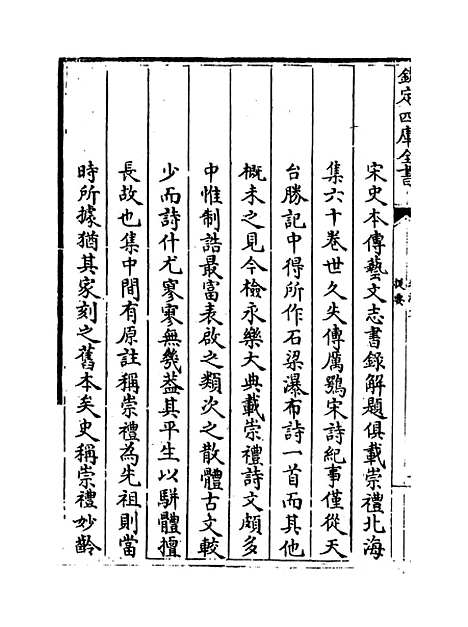 欽定四庫全書
提要
宋史本傳藝文志書録解題俱載崇禮北海
集六十卷世久失傳厲鶚宋詩紀事僅從天
台勝記中得所作石梁瀑布詩一首而其他
概未之見今檢永樂大典載崇禮詩文頗多
中惟制誥最富表啟之類次之散體古文較
少而詩什尤寥寥無幾葢其平生以駢體擅
長故也集中間有原註稱崇禮為先祖則當
時所據猶其家刻之舊本矣史稱崇禮妙齡